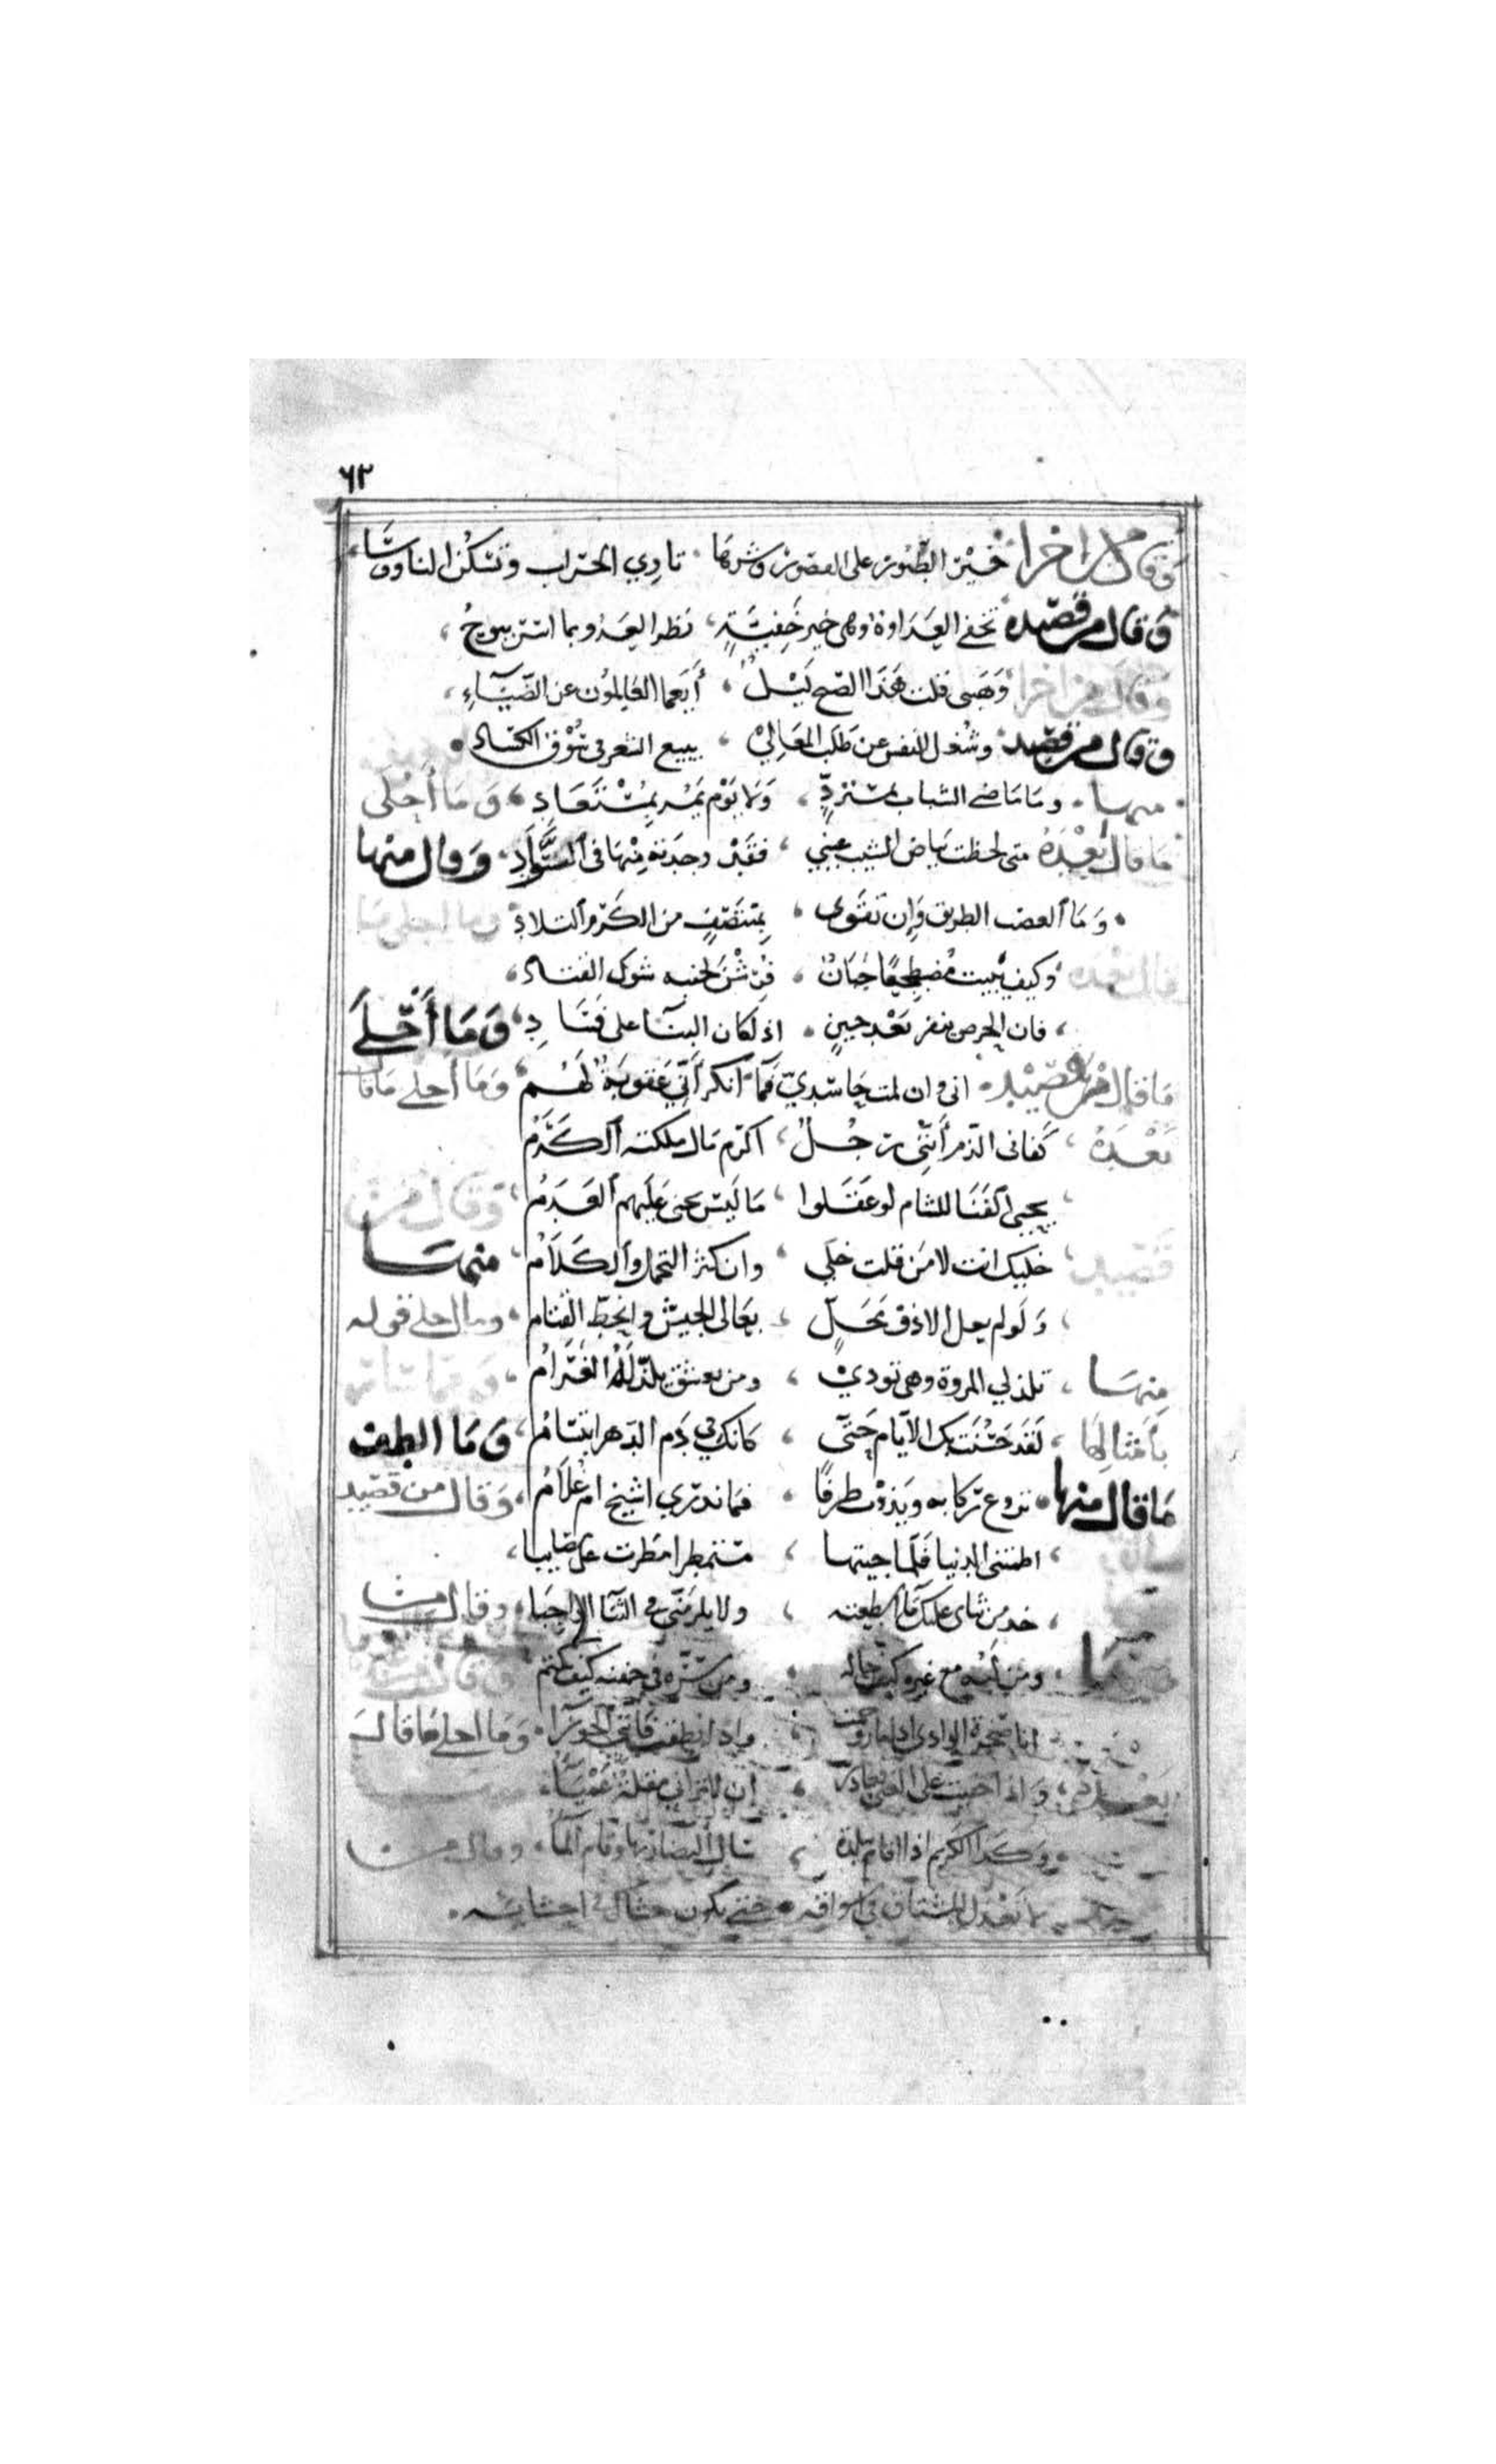 ٦٢
وقال اخرا خير الطيور على القصور وشرها تاوي الخراب وتسكن الناوسا
وقال من قصيده تخفى العداوة وهي خير خفية نظر العدو بما استر يبوح
وقال من اخرا وهبني قلت هذا الصبح ليل أيعما العالمون عن الضياء
وقال من قصيد وشغل النفس عن طلب المعالي ببيع الشعر في سوق الكساد
منها وما ماضي الشباب بمسترد ولا يوم يمر بمستعاد وما أحلى
ما قال بعده متى لحظت بياض الشيب عيني فقد وجدته منها في السواد وقال منها
وما العضب الطريق وإن تقوى بمنتصف من الكرم التلاد وما احلى ما
قال بعده وكيف يبيت مضطجعا جبان فرشت لجنبه شوك القتاد
فان الجرح ينفر بعد حين اذا كان البنا على فساد وما أحلى
ما قال من قصيد اني وان لمت حاسدي فما انكر أني عقوبة لهم وما أحلى ما قال
بعده كفاني الذم أنني رجل اكرم مال ملكته الكرم
يجني الغنا للئام لو عقلوا ما ليس يجني عليهم العدم وقال من
قصيد خليلك انت لا من قلت خلي وان كثر التجمل والكلام منها
ولو لم يعل الا ذو محل تعالى الجيش وانحط القتام وما احلى قوله
منها تلذ لي المروة وهي تؤذي ومن يعشق يلذ له الغرام
بأمثالها لقد حسنت بك الأيام حتى كانك في فم الدهر ابتسام وما الطف
ما قال منها تروع ركابه ويذوب طرفا فما ندري اشيخ ام غلام وقال من قصيد
اظمتني الدنيا فلما جيتها مستمطرا مطرت علي مصايبا
خذ من ثناي عليك ما اسطيعه ولا يلزمني في الثنا الواجبا وقال من
ومن لبه مع غيره كيف حاله ومن سره في جفنه كيف يكتم وقال
انا صخرة الوادي اذا ما زوحمت واذا نطقت فانني الجوزا وما احلى ما قال
بعد واذا خفيت على الغبي فعاذر ان لا تراني مقلة عميا
وكذا الكريم اذا اقام ببلدة سال النضار بها وقام الما وقال من
لا تعذل المشتاق في اشواقه حتى يكون حشاك في احشائه